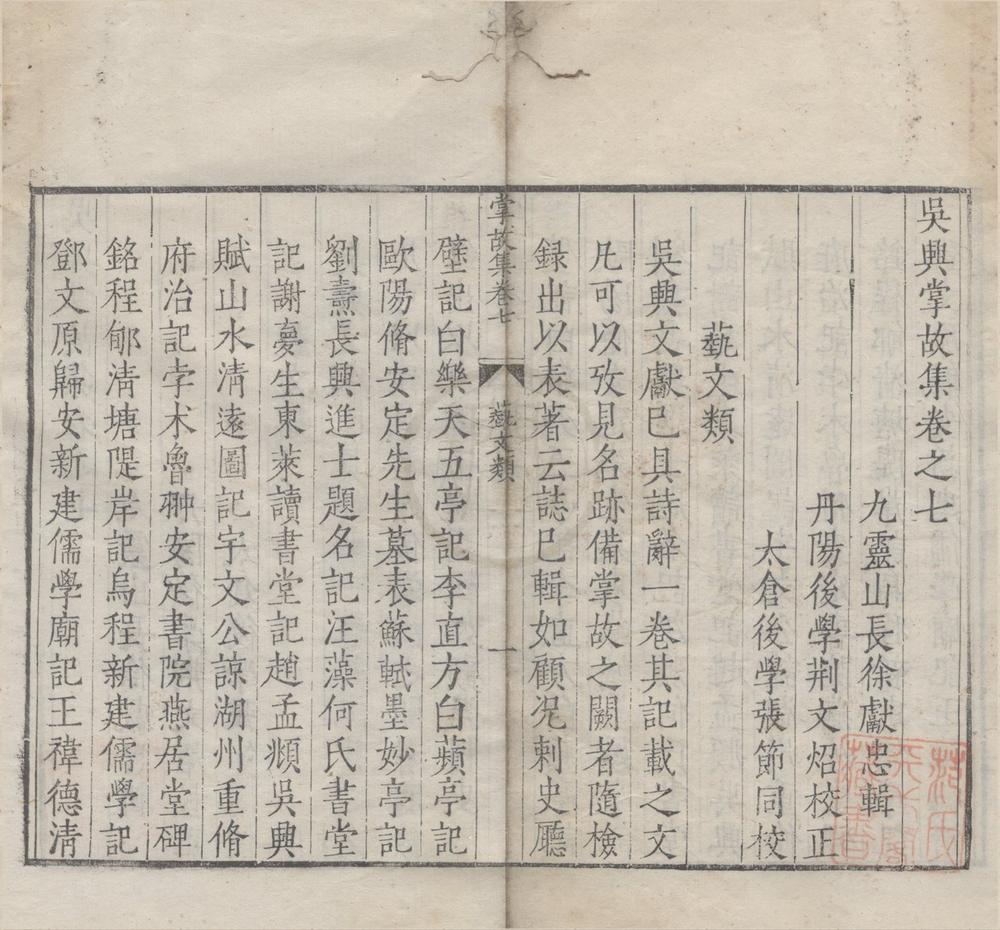 吳興掌故集卷之七
九靈山長徐獻忠輯
丹陽後學荆文炤校正
太倉後學張節同校
藝文類
吳興文獻已具詩辭一卷其記載之文
凡可以攷見名跡備掌故之闕者隨檢
録出以表著云誌已輯如顧况刺史廳
掌故集卷七
藝文類
一
壁記白樂天五亭記李直方白蘋亭記
歐陽脩安定先生墓表蘇軾墨妙亭記
劉燾長興進士題名記汪藻何氏書堂
記謝夢生東萊讀書堂記趙孟頫吳興
賦山水清遠圖記宇文公諒湖州重脩
府治記孛术魯翀安定書院燕居堂碑
銘程郇清塘隄岸記烏程新建儒學記
鄧文原歸安新建儒學廟記王禕德清